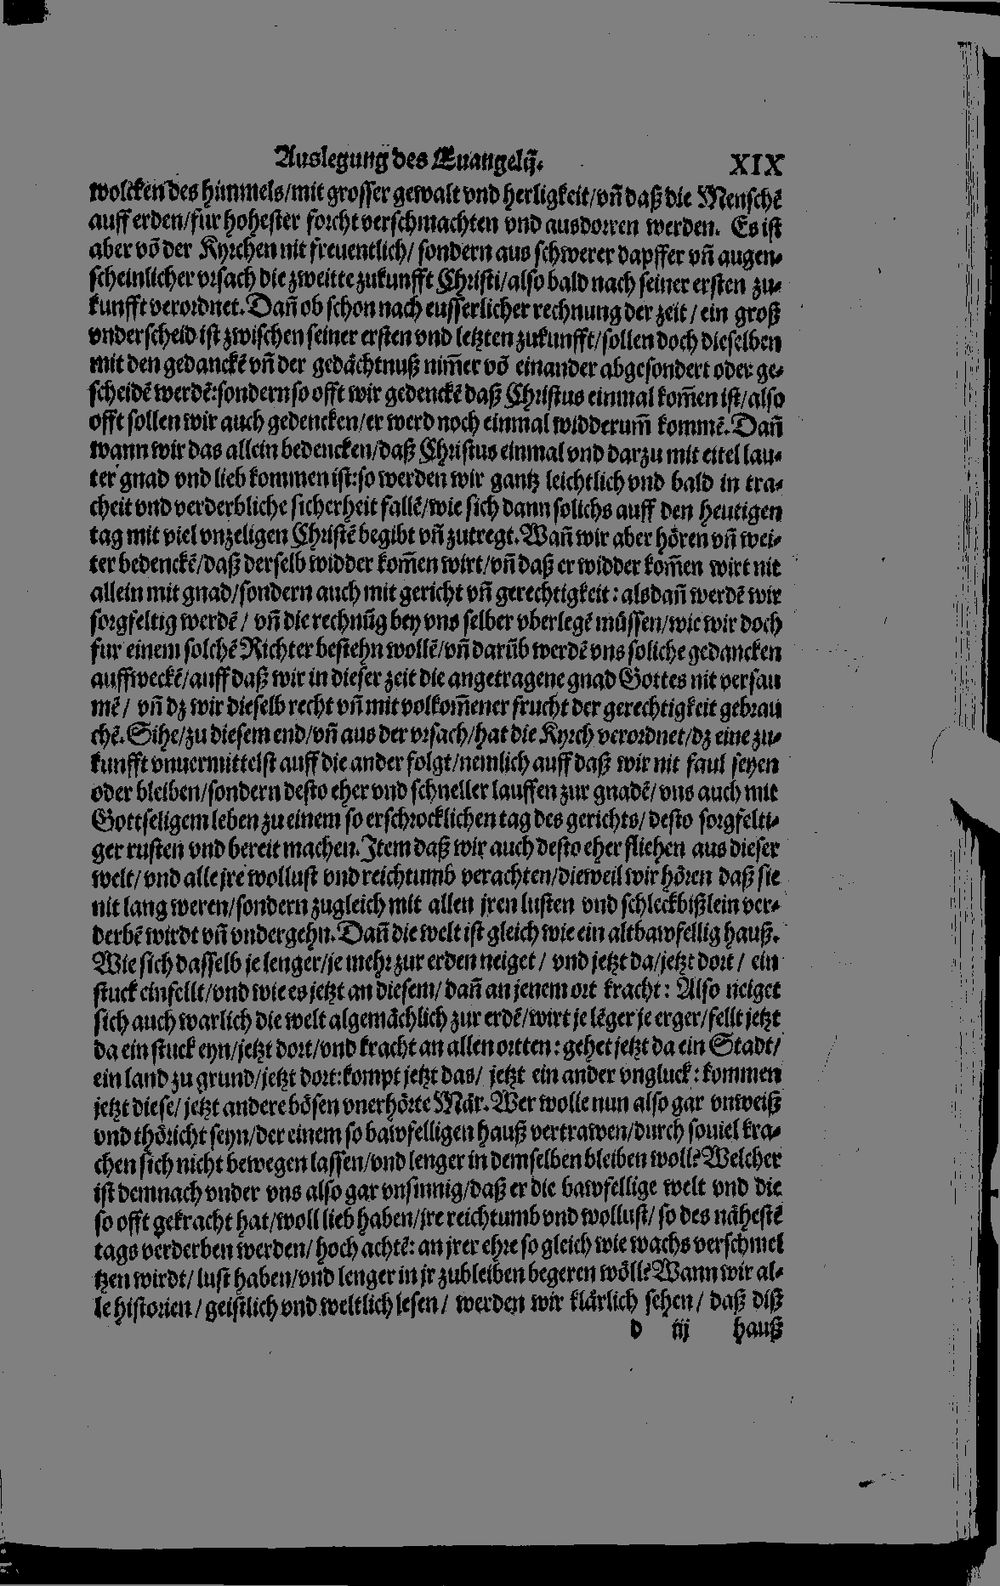 Auslegung des Euangelij. XIX
wolcken des himmels/mit grosser gewalt vnd herligkeit/vñ daß die Menschẽ
auff erden/fur hohester forcht verschmachten vnd ausdorren werden. Es ist
aber võ der Kyrchen nit freuentlich/ sondern aus schwerer dapffer vñ augen-
scheinlicher vrsach die zweitte zukunfft Christi/also bald nach seiner ersten zu-
kunfft verordnet. Dañ ob schon nach eusserlicher rechnung der zeit/ ein groß
vnderscheid ist zwischen seiner ersten vnd letzten zukunfft/sollen doch dieselben
mit den gedanckẽ vñ der gedächtnuß nim̃er võ einander abgesondert oder ge-
scheidẽ werdẽ:sondern so offt wir gedenckẽ daß Christus einmal kom̃en ist/also
offt sollen wir auch gedencken/er werd noch einmal widderum̃ kommẽ. Dañ
wann wir das allein bedencken/daß Christus einmal vnd darzu mit eitel lau-
ter gnad vnd lieb kommen ist:so werden wir gantz leichtlich vnd bald in tra-
cheit vnd verderbliche sicherheit fallẽ/wie sich dann solichs auff den heutigen
tag mit viel vnzeligen Christẽ begibt vñ zutregt. Wañ wir aber hören vñ wei-
ter bedenckẽ/daß derselb widder kom̃en wirt/vñ daß er widder kom̃en wirt nit
allein mit gnad/sondern auch mit gericht vñ gerechtigkeit: alsdañ werdẽ wir
sorgfeltig werdẽ/ vñ die rechnũg bey vns selber vberlegẽ müssen/wie wir doch
fur einem solchẽ Richter bestehn wollẽ/vñ darũb werdẽ vns soliche gedancken
auffweckẽ/auff daß wir in dieser zeit die angetragene gnad Gottes nit versau
mẽ/ vñ dz wir dieselb recht vñ mit volkom̃ener frucht der gerechtigkeit gebrau
chẽ. Sihe/zu diesem end/vñ aus der vrsach/hat die Kyrch verordnet/dz eine zu-
kunfft vnuermittelst auff die ander folgt/nemlich auff daß wir nit faul seyen
oder bleiben/sondern desto eher vnd schneller lauffen zur gnadẽ/ vns auch mit
Gottseligem leben zu einem so erschrocklichen tag des gerichts/ desto sorgfelti-
ger rusten vnd bereit machen. Item daß wir auch desto eher fliehen aus dieser
welt/ vnd alle jre wollust vnd reichtumb verachten/dieweil wir hören daß sie
nit lang weren/sondern zugleich mit allen jren lusten vnd schleckbißlein ver-
derbẽ wirdt vñ vndergehn. Dañ die welt ist gleich wie ein altbawfellig hauß.
Wie sich dasselb je lenger/je mehr zur erden neiget/ vnd jetzt da/jetzt dort/ ein
stuck einfellt/vnd wie es jetzt an diesem/ dañ an jenem ort kracht: Also neiget
sich auch warlich die welt algemächlich zur erdẽ/wirt je lẽger je erger/fellt jetzt
da ein stuck eyn/jetzt dort/vnd kracht an allen ortten: gehet jetzt da ein Stadt/
ein land zu grund/jetzt dort:kompt jetzt das/ jetzt ein ander vngluck: kommen
jetzt diese/ jetzt andere bösen vnerhörte Mär. Wer wolle nun also gar vnweiß
vnd thöricht seyn/der einem so bawfelligen hauß vertrawen/durch souiel kra-
chen sich nicht bewegen lassen/vnd lenger in demselben bleiben woll? Welcher
ist demnach vnder vns also gar vnsinnig/daß er die bawfellige welt vnd die
so offt gekracht hat/woll lieb haben/jre reichtumb vnd wollust/ so des nähestẽ
tags verderben werden/ hoch achtẽ: an jrer ehre so gleich wie wachs verschmel
tzen wirdt/ lust haben/vnd lenger in jr zubleiben begeren wöll? Wann wir al-
le historien/ geistlich vnd weltlich lesen/ werden wir klärlich sehen/ daß diß
d iij hauß